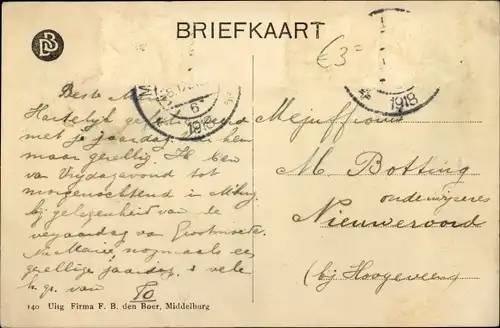 BRIEFKAART
DB
€3=
6
1918
1918
Beste Mien
Hartelijk gefeliciteerd
met je jaardag en hem
maar gezellig. Ik ben
van Vrijdagavond tot
morgenochtend in M'burg
bij gelegenheid van de
verjaardag van Grootmoeder.
Marie nogmaals een
gezellige jaardag & vele
h. gr. van To
Mejuffrouw
M. Botting
onderwijzeres
Nieuweroord
(bij Hoogeveen)
140 Uitg Firma F. B. den Boer, Middelburg